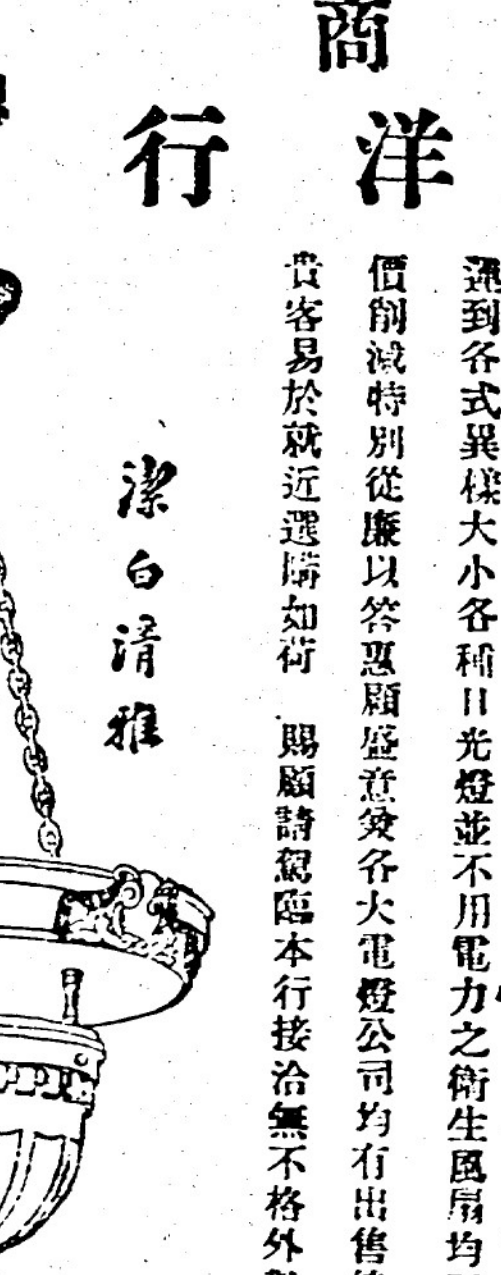 商
洋行
運到各式異樣大小各種日光燈並不用電力之衛生風扇均
價削減特別從廉以答惠顧盛意欵各大電燈公司均有出售
貴客易於就近選購如荷 賜顧請駕臨本行接洽無不格外
潔白清雅